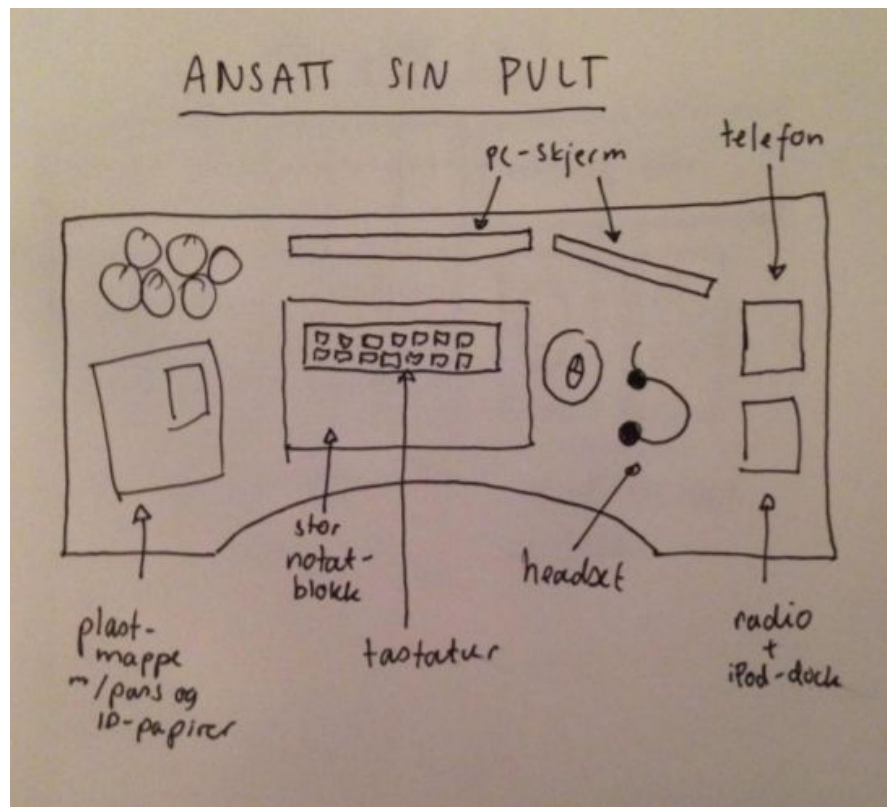 ANSATT SIN PULT
pc-skjerm
telefon
stor
notat-
blokk
tastatur
headset
plast-
mappe
m/pass og
ID-papirer
radio
+
iPod-dock